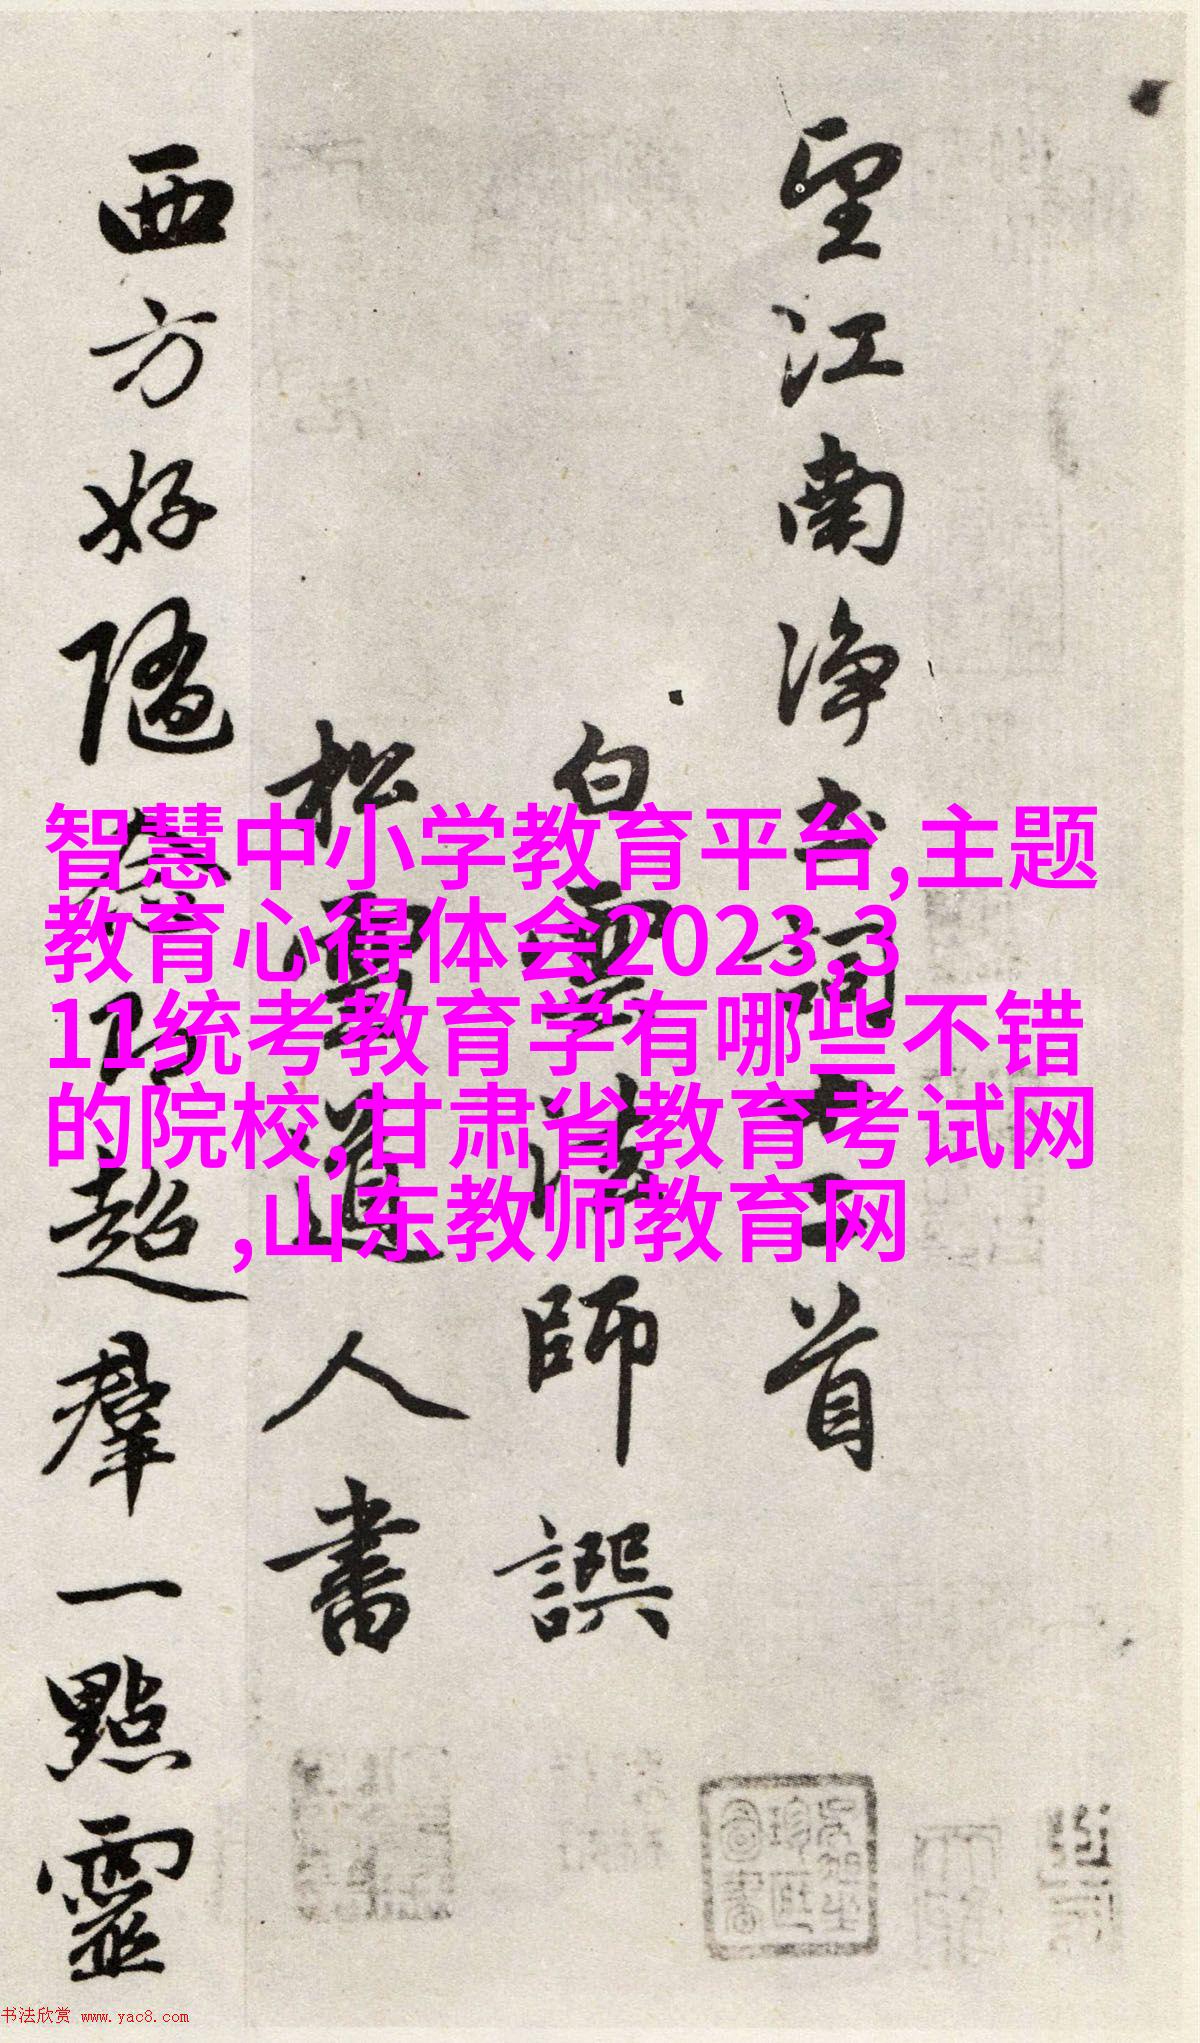 望江南净土詞十二首
白雲法師譔
松雪道人書
西方好隨念即超羣一點靈
智慧中小学教育平台,主题
教育心得体会2023,3
11统考教育学有哪些不错
的院校,甘肃省教育考试网
,山东教师教育网
书法欣赏 www.yac8.com